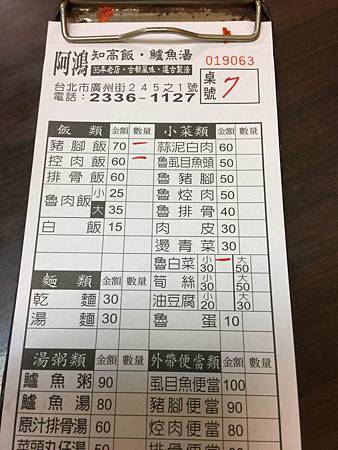 阿鴻 知高飯・鱸魚湯
35年老店・古都風味・遵古製法
019063
台北市廣州街245之1號
電話：2336-1127
桌號 7
飯類 金額 數量
豬腳飯 70 一
控肉飯 60 一
排骨飯 60
魯肉飯 小 25
大 35
白飯 15
麵類 金額 數量
乾麵 30
湯麵 30
湯粥類 金額 數量
鱸魚粥 90
鱸魚湯 80
原汁排骨湯 60
菜頭丸仔湯
小菜類 金額 數量
蒜泥白肉 60
魯虱目魚頭 50
魯豬腳 50
魯焢肉 50
魯排骨 40
肉皮 30
燙青菜 30
魯白菜 小30 一 大50
筍絲 小30 大50
油豆腐 小20 大30
魯蛋 10
外帶便當類 金額 數量
虱目魚便當 100
豬腳便當 90
焢肉便當 80
排骨便當 80